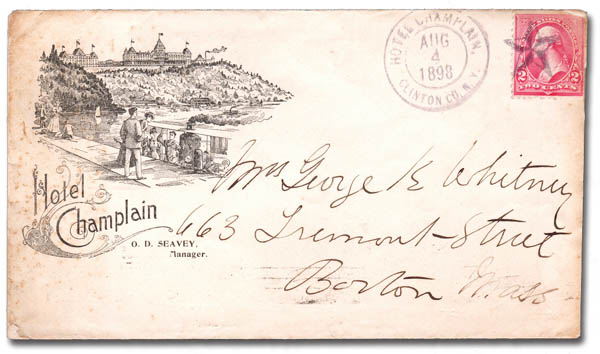 HOTEL CHAMPLAIN,
AUG
4
1898
CLINTON CO., N.Y.
2 2
TWO CENTS
Hotel
Champlain
O. D. SEAVEY,
Manager.
Mrs George E Whitney
663 Tremont Street
Boston Mass